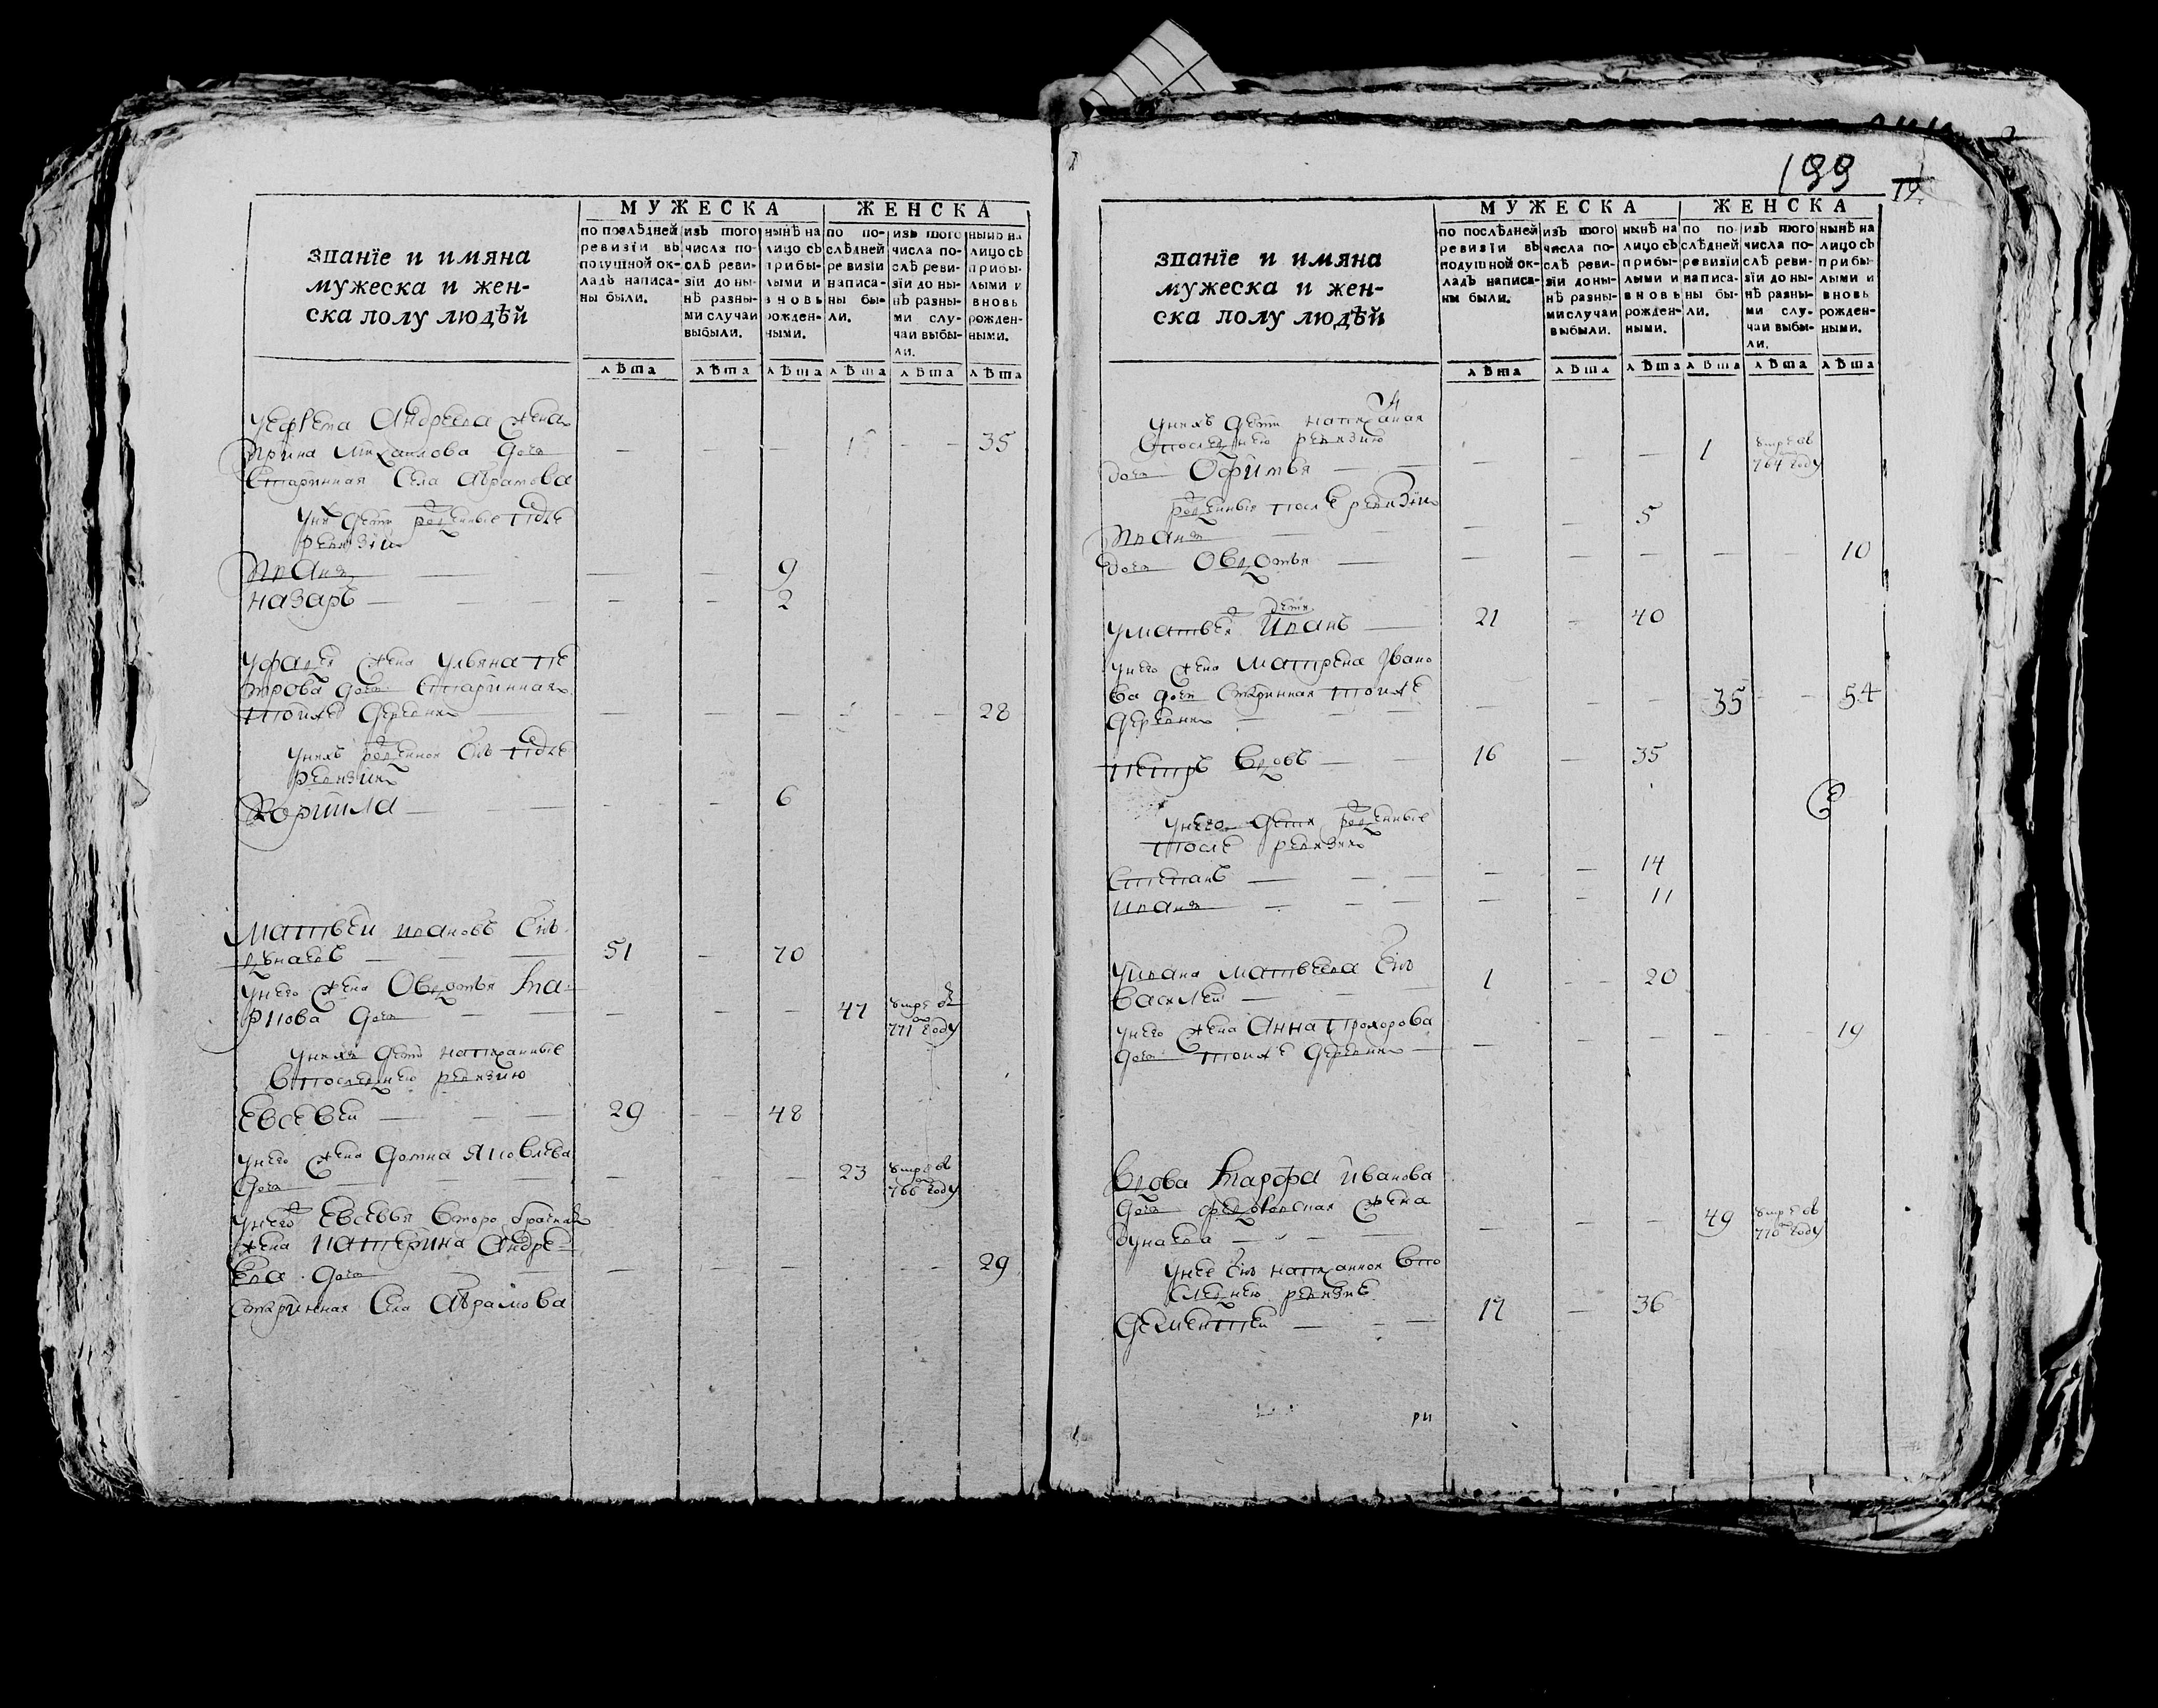 МУЖЕСКА
ЖЕНСКА
званїе и имяна
мужеска и жен-
ска полу людѣй
по послѣдней
ревизїи въ
подушной ок-
ладъ написа-
ны были.
изъ того
числа по-
слѣ реви-
зїи до ны-
нѣ разны-
ми случаи
выбыли.
нынѣ на
лицо съ
прибы-
лыми и
вновь
рожден-
ными.
по по-
слѣдней
ревизїи
написа-
ны бы-
ли.
изъ того
числа по-
слѣ реви-
зїи до ны-
нѣ разны-
ми слу-
чаи выбы-
ли.
нынѣ на
лицо съ
прибы-
лыми и
вновь
рожден-
ными.
лѣта лѣта лѣта лѣта лѣта лѣта
Андреева жена
Ирина Михаилова дочь — — — — — 35
Старинная села Абрамова
у них дети рожденные после
ревизии
Иванъ — — — 9
Назаръ — — — 2
жена Ульяна Пе
трова дочь старинная
тоей же деревни — — — — — 28
у нихъ рожденной снъ после
ревизии
Корнила — — — 6
Матвей Ивановъ снъ
51 — 70
у него жена Овдотья
дочь — — — 47 умре въ
771 году
у нихъ дети написанные
в последнею ревизию
Евсевей — 29 — 48
у него жена Домна Яковлева
дочь — — — 23 умре въ
766 году
у него Евсевья второбрачная
жена Катерина Андре
ева дочь — — — — — 29
старинная села Абрамова
199
19
МУЖЕСКА
ЖЕНСКА
званїе и имяна
мужеска и жен-
ска полу людѣй
по послѣдней
ревизїи въ
подушной ок-
ладъ написа-
ны были.
изъ того
числа по-
слѣ реви-
зїи до ны-
нѣ разны-
ми случаи
выбыли.
нынѣ на
лицо съ
прибы-
лыми и
вновь
рожден-
ными.
по по-
слѣдней
ревизїи
написа-
ны бы-
ли.
изъ того
числа по-
слѣ реви-
зїи до ны-
нѣ разны-
ми слу-
чаи выбы-
ли.
нынѣ на
лицо съ
прибы-
лыми и
вновь
рожден-
ными.
лѣта лѣта лѣта лѣта лѣта лѣта
у нихъ дети написаная
в последнею ревизию
дочь Офимья — — — 1 умре въ
764 году
рожденныя после ревизии
Иванъ — — — 5
дочь Овдотья — — — — — 10
у Матвея дети Иванъ — 21 — 40
у него жена Матрена Ивано
ва дочь старинная тоей же
деревни — — — 35 — 54
Петръ вдовъ — 16 — 35
у него дети рожденные
после ревизии
Степанъ — — — 14
Иванъ — — — 11
у Ивана Матвеева снъ
Василей — 1 — 20
у него жена Анна Прохорова
дочь тоей же деревни — — — — — 19
вдова Марфа Иванова
дочь жена
— — — 49 умре въ
770 году
у нее снъ написанной в по
следнею ревизие
Дементей — 17 — 36